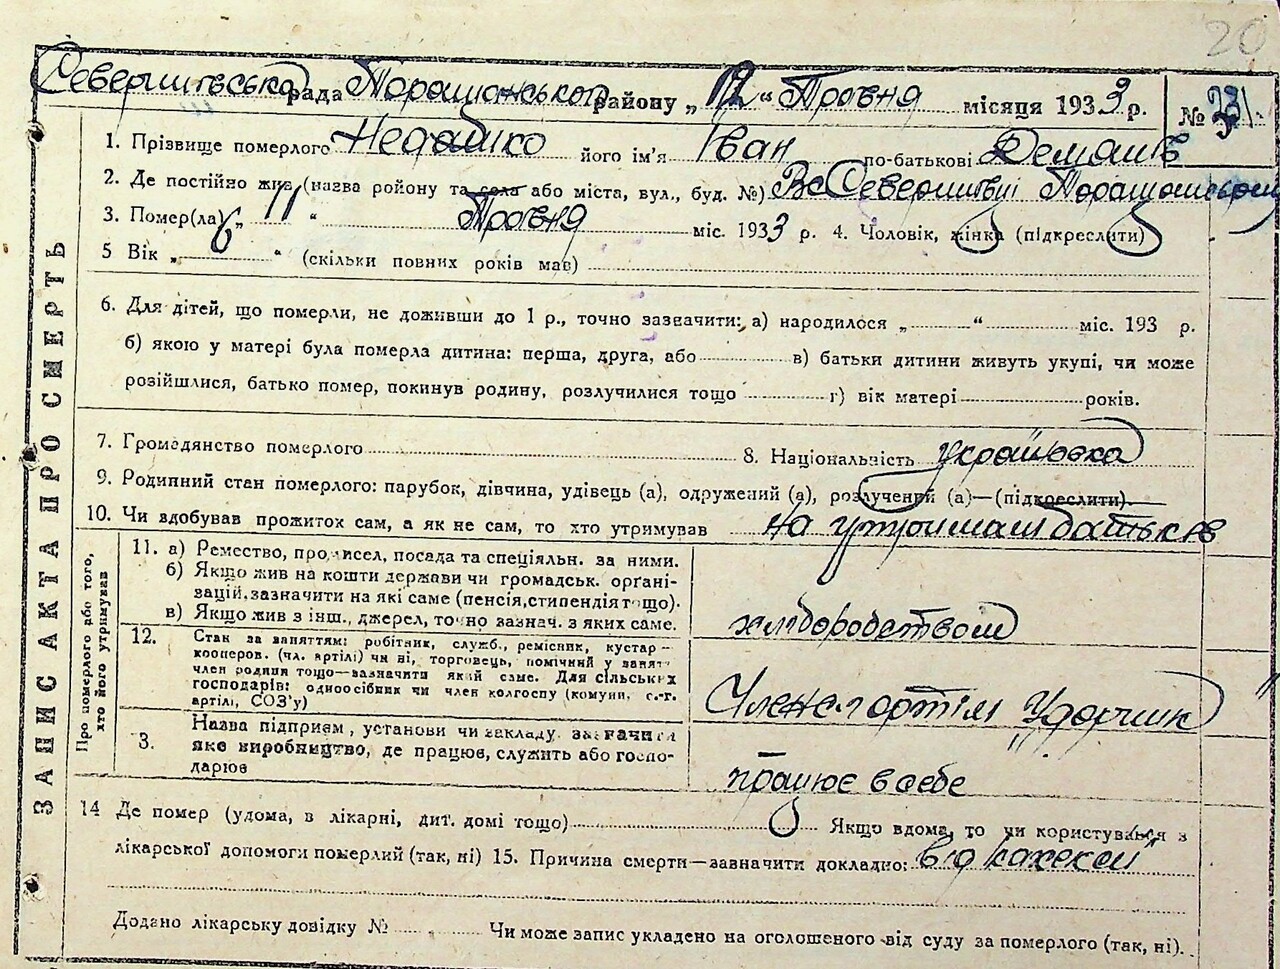 20
рада Таращанського району „ 12 “ Травня місяця 1933 р. № 231
1. Прізвище померлого його ім'я Іван по-батькові
2. Де постійно жив (назва району та села або міста, вул., буд. №)
3. Помер(ла) „ 11 “ Травня міс. 1933 р. 4. Чоловік, жінка (підкреслити)
5 Вік „ “ (скільки повних років мав)
6. Для дітей, що померли, не доживши до 1 р., точно зазначити: а) народилося „ “ міс. 193 р.
б) якою у матері була померла дитина: перша, друга, або в) батьки дитини живуть укупі, чи може
розійшлися, батько помер, покинув родину, розлучилися тощо г) вік матері років.
7. Громадянство померлого 8. Національність українська
9. Родинний стан померлого: парубок, дівчина, удівець (а), одружений (а), розлучений (а)—(підкреслити)
10. Чи здобував прожиток сам, а як не сам, то хто утримував на батьків
ЗАПИС АКТА ПРО СМЕРТЬ
Про померлого або того,
хто його утримував
11. а) Ремество, промисел, посада та спеціяльн. за ними.
б) Якщо жив на кошти держави чи громадськ. органі-
зацій, зазначити на які саме (пенсія, стипендія тощо).
в) Якщо жив з інш. джерел, точно зазнач. з яких саме.
хліборобством
12. Стан за заняттям: робітник, служб., ремісник, кустар—
кооперов. (чл. артілі) чи ні, торговець, помічний у занят.
член родини тощо—зазначити який саме. Для сільських
господарів: одноосібник чи член колгоспу (комуни, с.-г.
артілі, СОЗ'у)
Член с.г артілі Ударник
3. Назва підприєм, установи чи закладу, зазначити
яке виробництво, де працює, служить або госпо-
дарює
працює в себе
14 Де помер (удома, в лікарні, дит. домі тощо) Якщо вдома, то чи користувався з
лікарської допомоги померлий (так, ні) 15. Причина смерти—зазначити докладно: від кахексії
Додано лікарську довідку № Чи може запис укладено на оголошеного від суду за померлого (так, ні).